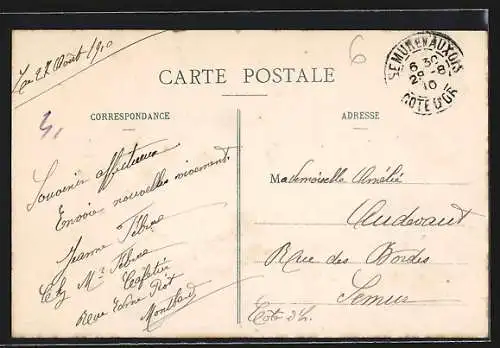 Le 27 Août 1910
6
SEMUR EN AUXOIS
6 30
28 - 8
10
COTE D'OR
CARTE POSTALE
CORRESPONDANCE
ADRESSE
Souvenir affectueux
Envoie nouvelles vivement
Jeanne Febvre
Chez Mr Febvre
Cafetier
Rue Edme Piot
Montbard
Mademoiselle Amélie
Andevaut
Rue des Bordes
Semur
Côte d'Or